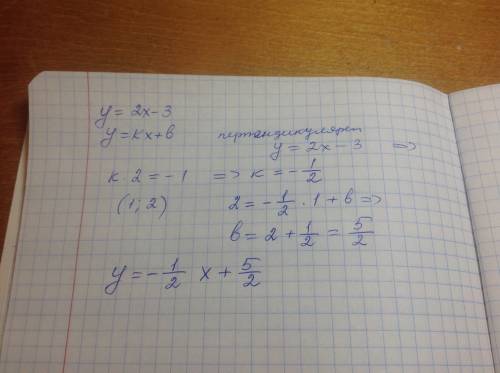 y = 2x - 3
y = kx + b перпендикулярен
y = 2x - 3 =>
k · 2 = -1 => k = -1/2
(1; 2) 2 = -1/2 · 1 + b =>
b = 2 + 1/2 = 5/2
y = -1/2 x + 5/2